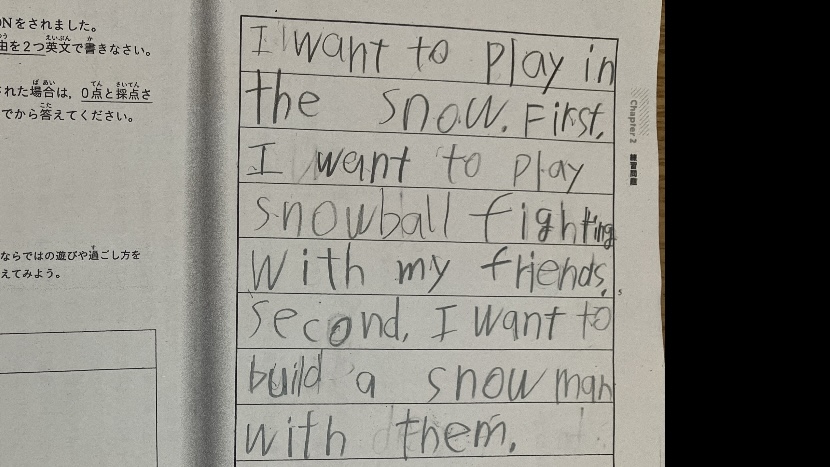 Nをされました。
由を2つ英文で書きなさい。
れた場合は、0点と採点さ
でから答えてください。
ならではの遊びや過ごし方を
えてみよう。
I want to play in
the snow. First,
I want to play
snowball fighting
With my friends,
second, I want to
build a snow man
with them.
Chapter 2 練習問題